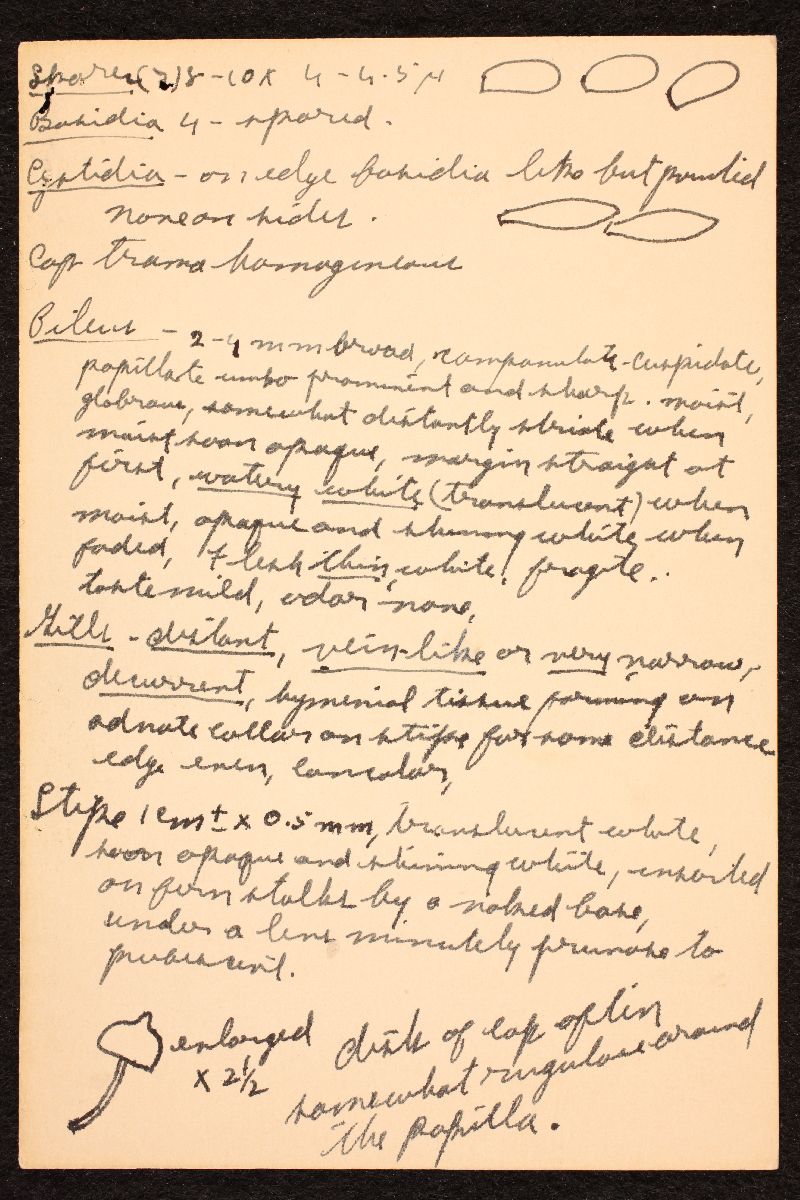 Spores (7)8-10 x 4-4.5 µ
Basidia 4-spored.
Cystidia - on edge basidia like but pointed
none on sides.
Cap trama homogeneous
Pileus - 2-4 mm broad, campanulate-cuspidate,
papillate umbo prominent and sharp. moist,
glabrous, somewhat distantly striate when
moist soon opaque, margin straight at
first, watery white (translucent) when
moist, opaque and shining white when
faded, Flesh thin, white, fragile.
taste mild, odor none,
Gills - distant, vein-like or very narrow,
decurrent, hymenial tissue forming an
adnate collar on stipe for some distance
edge even, concolor,
Stipe 1 cm ± x 0.5 mm, translucent white,
soon opaque and shining white, inserted
on fern stalks by a naked base,
under a lens minutely pruinose to
pubescent.
enlarged
x 2½
disk of cap often
somewhat rugulose around
the papilla.